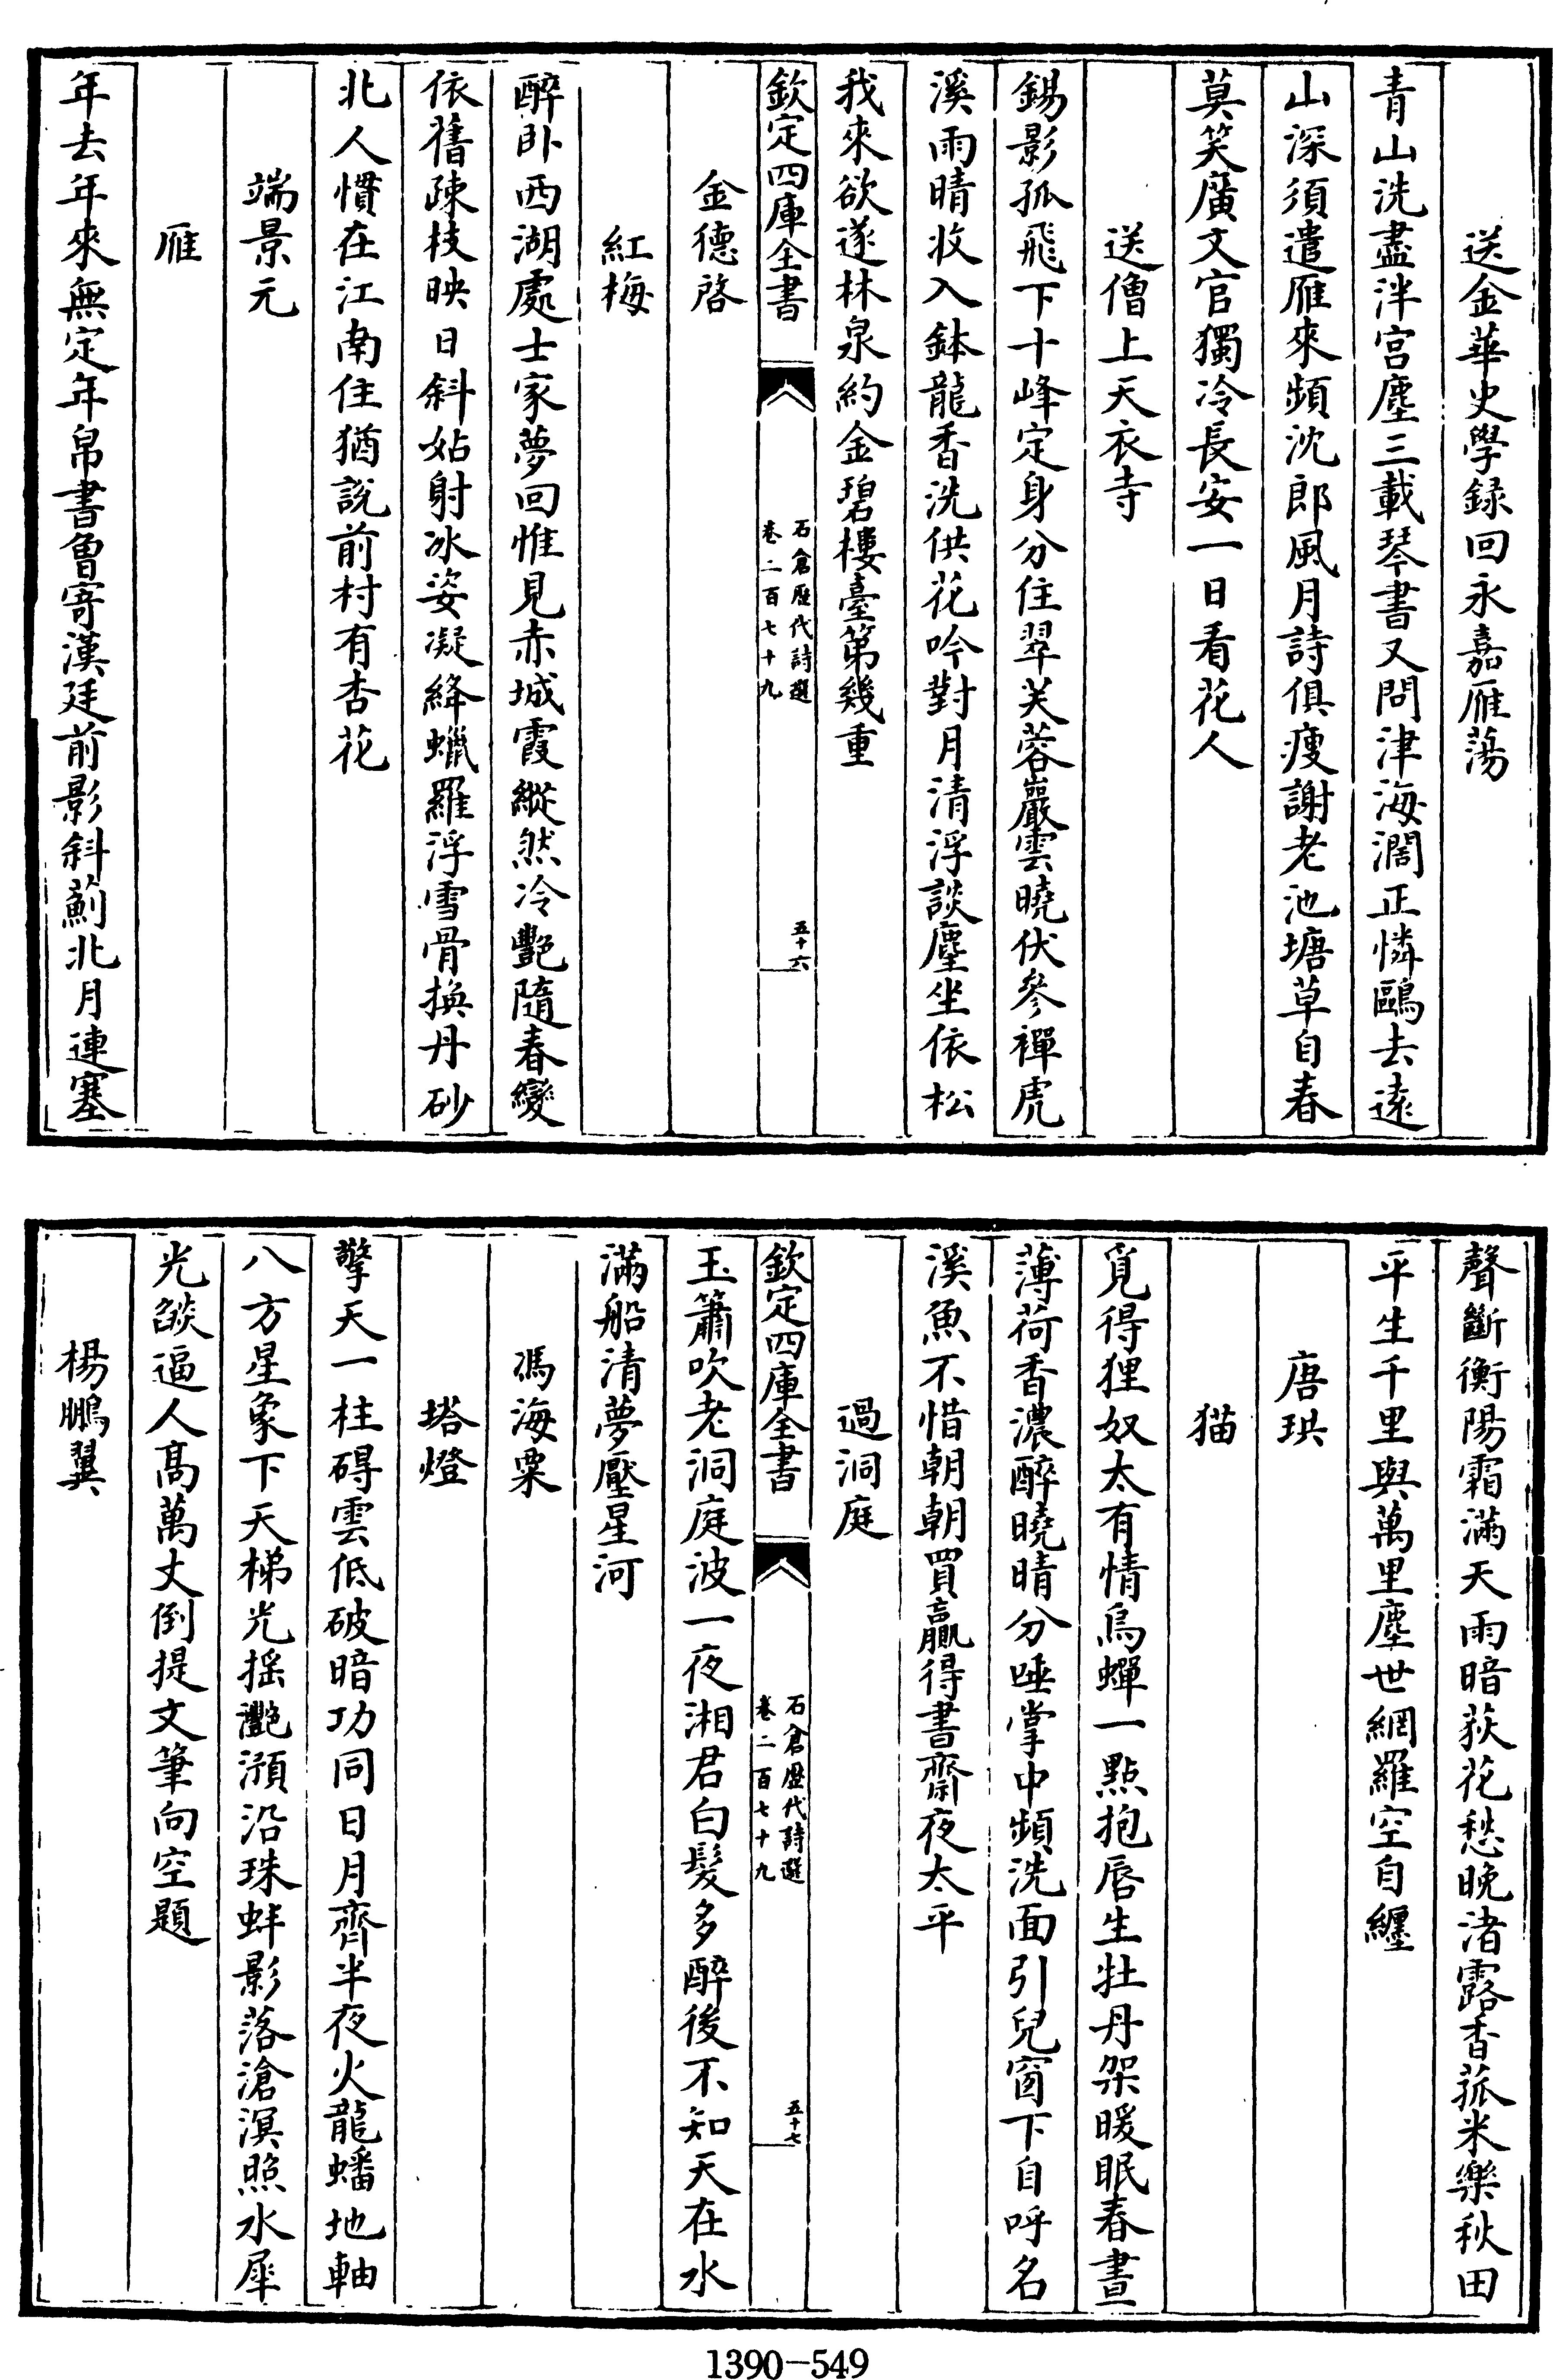 送金華史學録回永嘉雁蕩
青山洗盡泮宫塵三載琴書又問津海濶正憐鷗去逺
山深須遣雁來頻沈郎風月詩俱痩謝老池塘草自春
莫笑廣文官獨冷長安一日看花人
送僧上天衣寺
錫影孤飛下十峰定身分住翠芙蓉巖雲曉伏參禪虎
溪雨晴收入鉢龍香洗供花吟對月清浮談麈坐依松
我來欲遂林泉約金碧樓臺第幾重
欽定四庫全書
石倉歴代詩選
卷二百七十九
五十六
金德啓
紅梅
醉卧西湖處士家夢回惟見赤城霞縱然冷艷隨春變
依舊疎枝映日斜姑射冰姿凝絳蠟羅浮雪骨換丹砂
北人慣在江南住猶説前村有杏花
端景元
雁
年去年來無定年帛書曾寄漢廷前影斜薊北月連塞
聲斷衡陽霜滿天雨暗荻花愁晚渚露香菰米樂秋田
平生千里與萬里塵世網羅空自纏
唐珙
猫
覓得狸奴太有情烏蟬一點抱唇生牡丹架暖眠春晝
薄荷香濃醉曉晴分唾掌中頻洗面引兒窗下自呼名
溪魚不惜朝朝買贏得書齋夜太平
過洞庭
欽定四庫全書
石倉歴代詩選
卷二百七十九
五十七
玉簫吹老洞庭波一夜湘君白髮多醉後不知天在水
滿船清夢壓星河
馮海粟
塔燈
擎天一柱碍雲低破暗功同日月齊半夜火龍蟠地軸
八方星象下天梯光揺灔澦沿珠蚌影落滄溟照水犀
光燄逼人髙萬丈倒提文筆向空題
楊鵬翼
1390—549